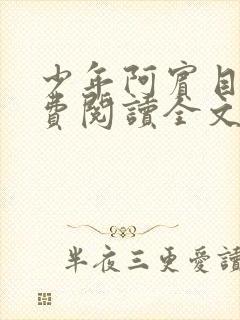 少年阿賓目
費閱讀全文
半夜三更愛讀